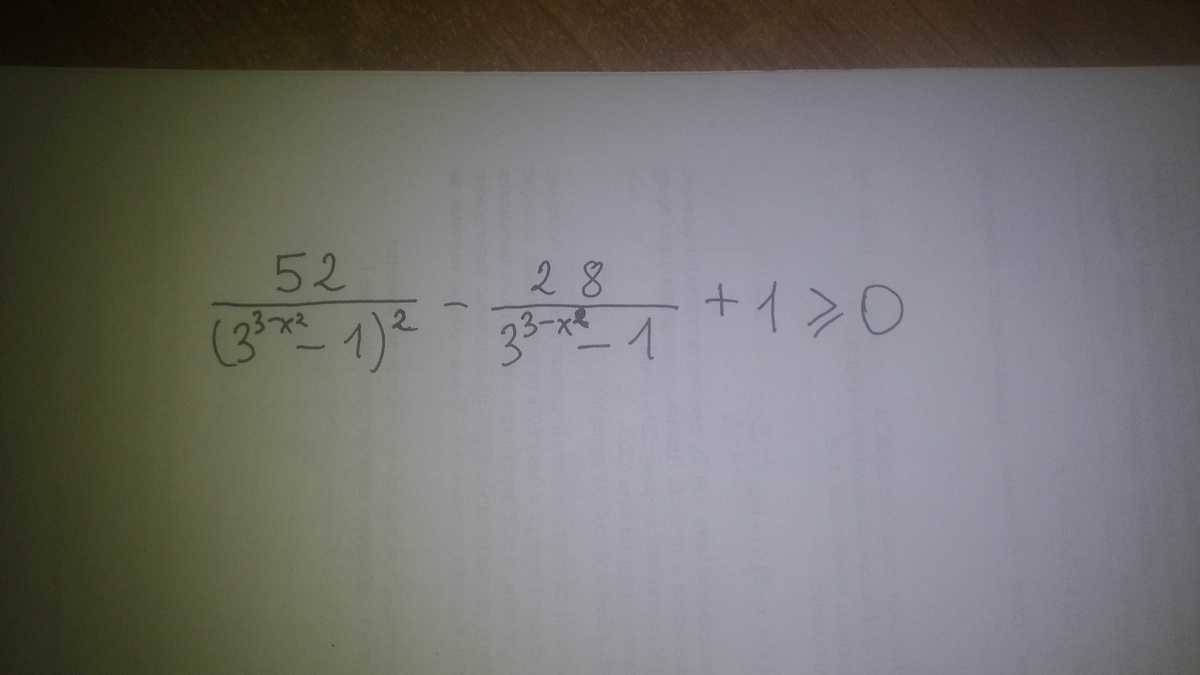 52/(3^(3-x²) - 1)² - 28/(3^(3-x²) - 1) + 1 ⩾ 0